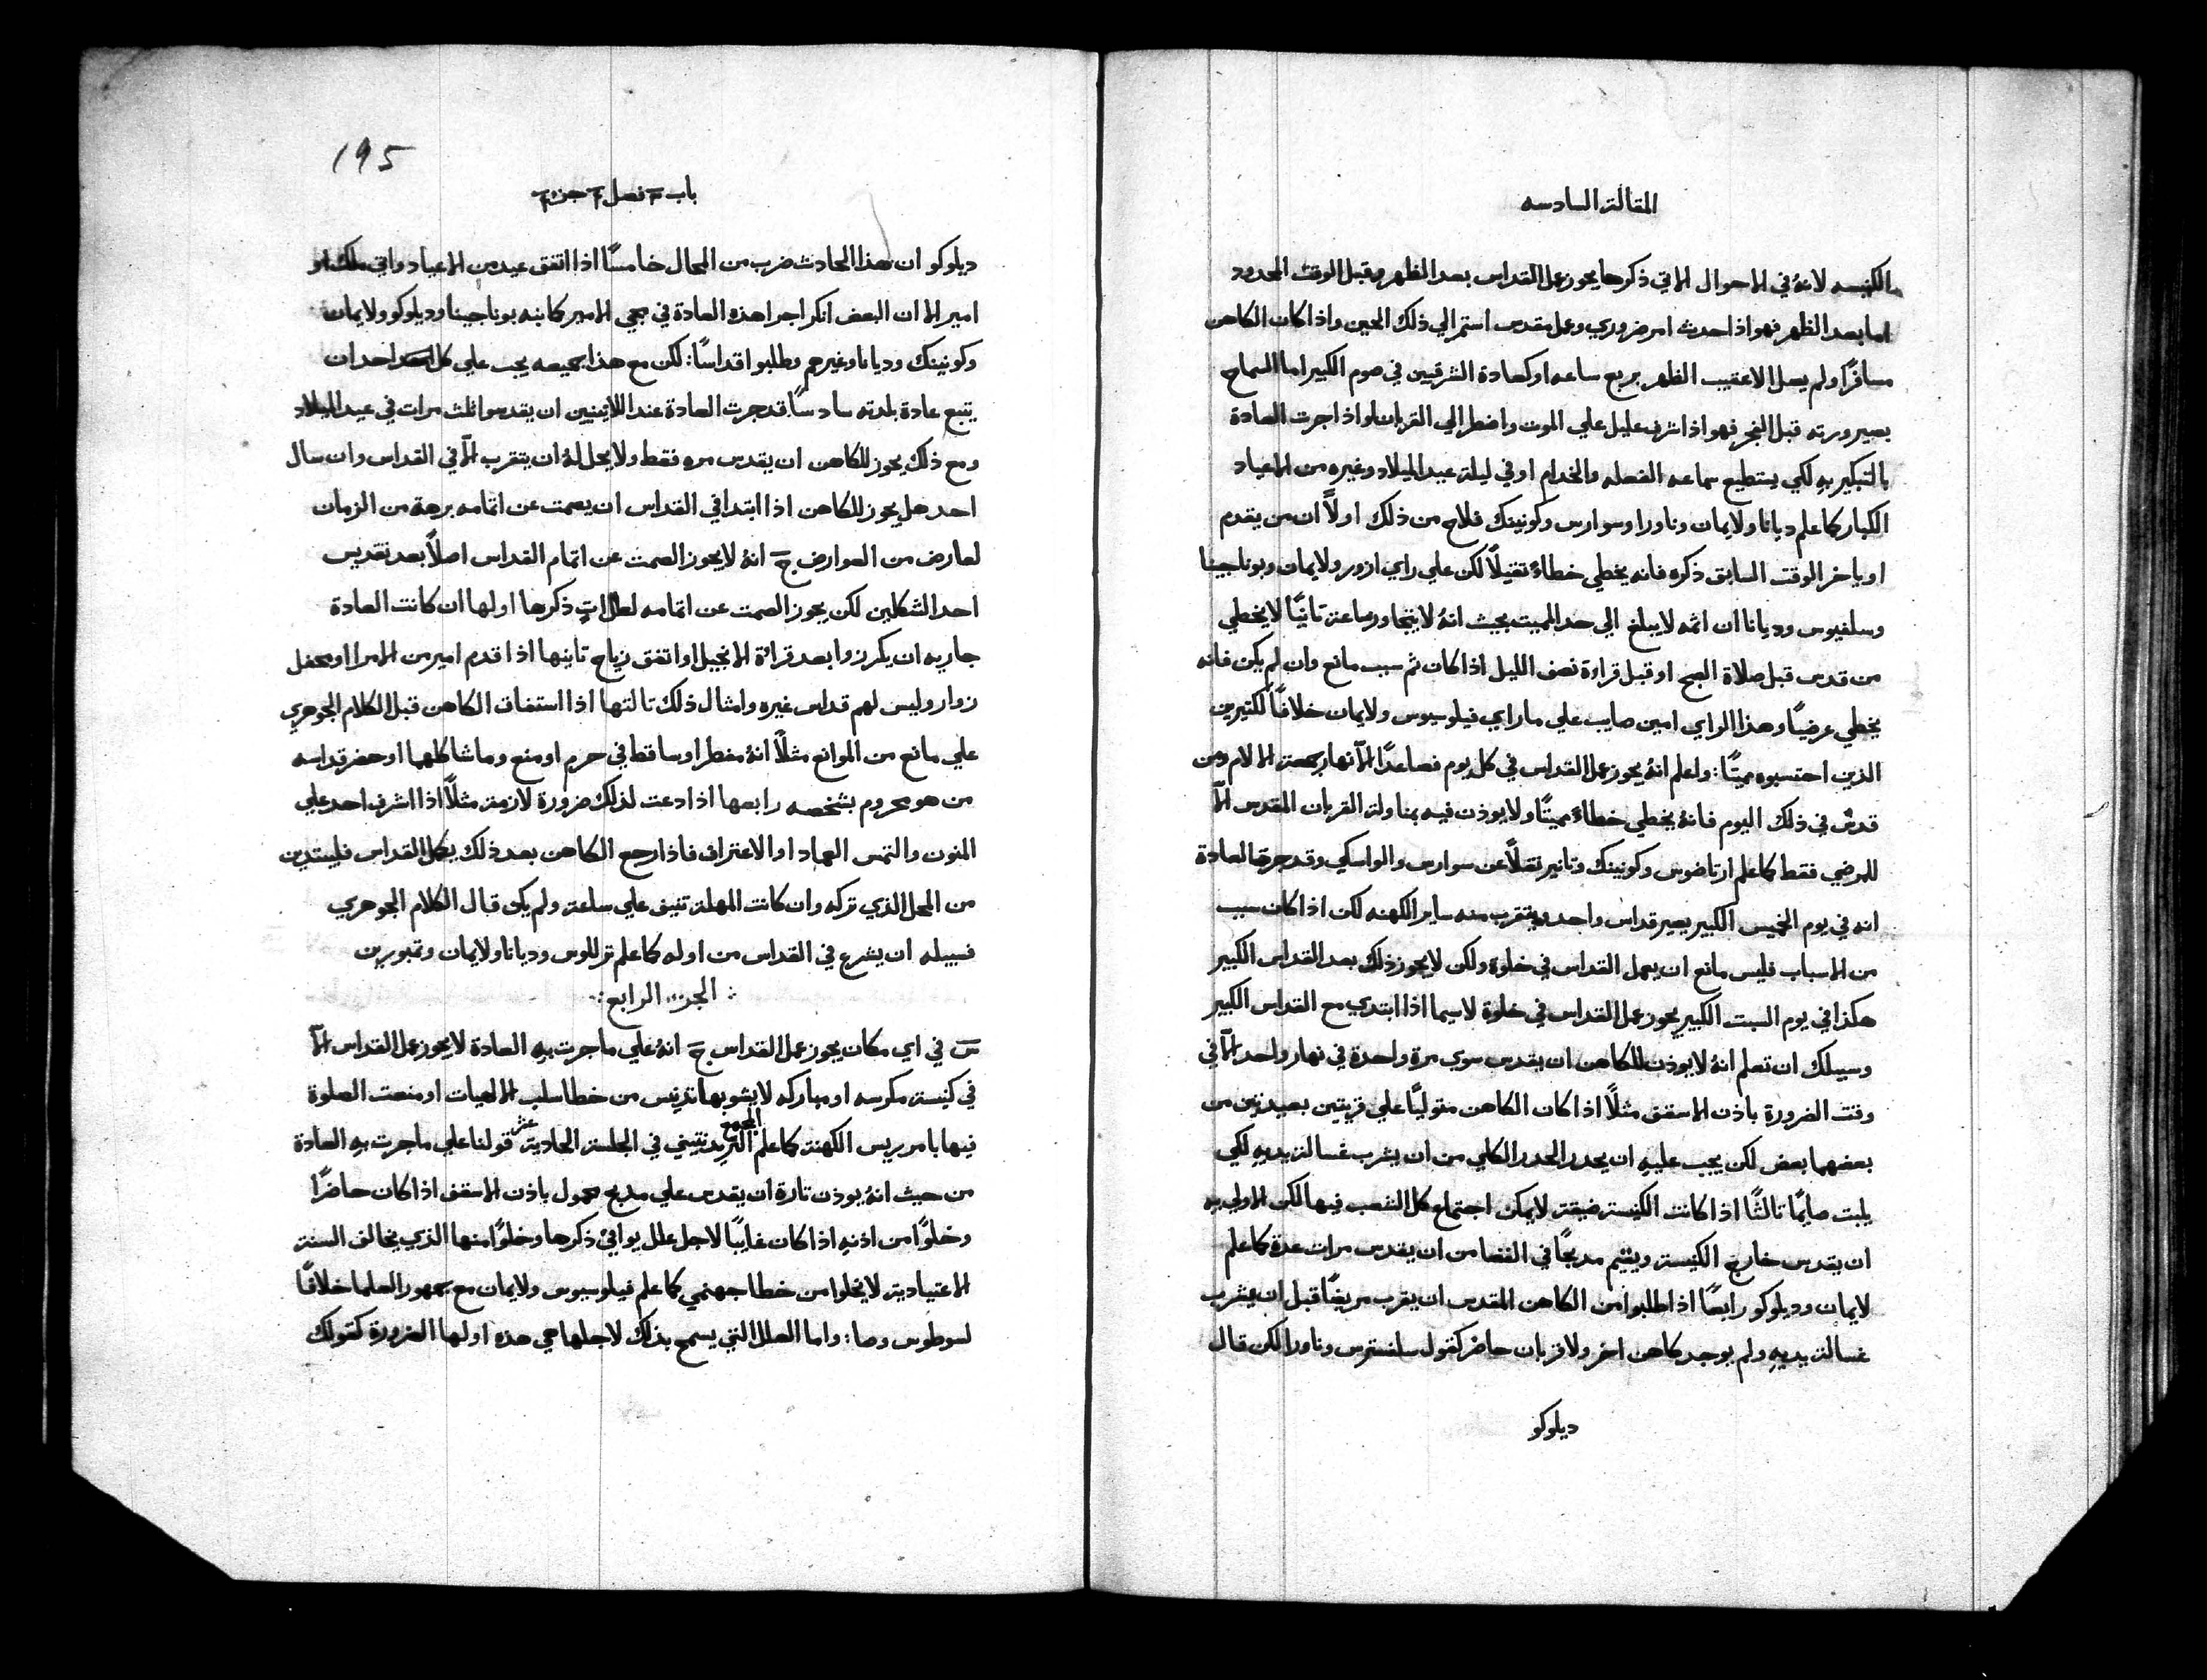 المقالة السادسه
الكنيسه لانهُ في الاحوال الاتي ذكرها يجوز عمل القداس بعد الظهر وقبل الوقت المحدود
اما بعد الظهر فهو اذا حدث امر ضروري وعمل مقدس استمر الي ذلك الحين واذا كان الكاهن
مسافرًا ولم يصل الا عقيب الظهر بربع ساعه او كعادة الشرقيين في صوم الكبير اما السماح
بصيرورته قبل الفجر فهو اذا شرف عليل علي الموت واضطر الي القربان او اذا جرت العادة
بالتبكير بهِ لكي يستطيع سماعه الفعله والخدام او في ليلة عيد الميلاد وغيره من الاعياد
الكبار كما علم ديانا ولايمان وناورا وسوارس وكونينك فلاح من ذلك اولاً ان من يقدم
او ياخر الوقت السابق ذكره فانه يخطي خطاءً ثقيلاً لكن علي راي ازور ولايمان وبوناجينا
وسلفيوس وديانا ان اثمه لا يبلغ الي حد المميت بحيث انهُ لا يتجاوز ساعة ثانيًا لا يخطي
من قدس قبل صلاة الصبح او قبل قراءة نصف الليل اذا كان ثم سبب مانع وان لم يكن فانه
يخطي عرضيًا وهذا الراي امين صايب علي ما راي فيلوسيوس ولايمان خلافًا لكثيرين
الذين احتسبوه مميتًا: واعلم انهُ يجوز عمل القداس في كل يوم فصاعدًا الا نهار جمعة الالام ومن
قدس في ذلك اليوم فانهُ يخطي خطاءً مميتًا ولا يوذن فيه بمناولة القربان المقدس الا
للمرضي فقط كما علم ارتاضوس وكونينك وتانير نقلاً عن سوارس والواسكي وقد جرت العادة
انه في يوم الخميس الكبير يصير قداس واحد ويتقرب منه ساير الكهنه لكن اذا كان سبب
من الاسباب فليس مانع ان يعمل القداس في خلوة ولكن لا يجوز ذلك بعد القداس الكبير
هكذا في يوم السبت الكبير يجوز عمل القداس في خلوة لاسيما اذا ابتدي مع القداس الكبير
وسبيلك ان تعلم انهُ لا يوذن للكاهن ان يقدس سوي مرة واحدة في نهار واحد الا في
وقت الضرورة باذن الاسقف مثلاً اذا كان الكاهن متوليًا علي قريتين بعيدتين من
بعضهما بعض لكن يجب عليهِ ان يحذر الحذر الكلي من ان يشرب غسالة يديهِ لكي
يلبث صايمًا ثالثًا اذا كانت الكنيسة ضيقة لا يمكن اجتماع كل الشعب فيها لكن الاولي به
ان يقدس خارج الكنيسة ويقيم مذبحًا في الفضا من ان يقدس مرات عدة كما علم
لايمان وديلوكو رابعًا اذا طلبوا من الكاهن المقدس ان يقرب مريضًا قبل ان يشرب
غسالة يديهِ ولم يوجد كاهن اخر ولا قربان حاضر كقول سلفسترس وناورا لكن قال
ديلوكو
195
باب ٣ فصل ٤ جزء ٤
ديلوكو ان هذا الحادث ضرب من المحال خامسًا اذا اتفق عيد من الاعياد واتي ملك او
امير الا ان البعض انكر اجرا هذه العادة في مجي الامير كما بنه بوناجينا وديلوكو ولايمان
وكونينك وديانا وغيرهم وطلبوا قداسًا: لكن مع هذا جميعه يجب علي كل احد ان
يتبع عادة بلدته سادسًا قد جرت العادة عند اللاتينيين ان يقدسوا ثلث مرات في عيد الميلاد
ومع ذلك يجوز للكاهن ان يقدس مره فقط ولا يحل لهُ ان يتقرب الا في القداس وان سال
احد هل يجوز للكاهن اذا ابتدا في القداس ان يصمت عن اتمامه برهة من الزمان
لعارض من العوارض جَ انهُ لا يجوز الصمت عن اتمام القداس اصلاً بعد تقديس
احد الشكلين لكن يجوز الصمت عن اتمامه لعلل اتٍ ذكرها اولها ان كانت العادة
جاريه ان يكرزوا بعد قراة الانجيل او اتفق زياح ثانيها اذا قدم امير من الامرا او محفل
زوار وليس لهم قداس غيره وامثال ذلك ثالثها اذا استفاق الكاهن قبل الكلام الجوهري
علي مانع من الموانع مثلاً انهُ مفطر او ساقط في حرم او منع وما شاكلهما او حضر قداسه
من هو محروم بشخصه رابعها اذا دعت لذلك ضرورة لازمة مثلاً اذا اشرف احد علي
المنون والتمس العماد او الاعتراف فاذا رجع الكاهن بعد ذلك يكمل القداس فليبتدين
من المحل الذي تركه وان كانت المهلة تنيف علي ساعة ولم يكن قال الكلام الجوهري
فسبيله ان يشرع في القداس من اوله كما علم تراللوس وديانا ولايمان وتمبورين
: الجزء الرابع :
سَ في اي مكان يجوز عمل القداس جَ انهُ علي ما جرت بهِ العادة لا يجوز عمل القداس الا
في كنيسة مكرسه او مباركه لا يشوبها تدنيس من خطا سلب الالهيات او منعت الصلوة
فيها بامر ريس الكهنة كما علم المجمع التريدنتيني في الجلسة الحادية عشر قولنا علي ما جرت بهِ العادة
من حيث انهُ يوذن تارة ان يقدس علي مذبح محمول باذن الاسقف اذا كان حاضرًا
وخلوًا من اذنهِ اذا كان غايبًا لاجل علل يوافي ذكرها وخلوًا منها الذي يخالف السنة
الاعتيادية لا يخلوا من خطا جهنمي كما علم فيلوسيوس ولايمان مع جمهور العلما خلافًا
لسوطوس وصا: واما العلل التي يسمح بذلك لاجلها هي هذه اولها الضرورة كقولك